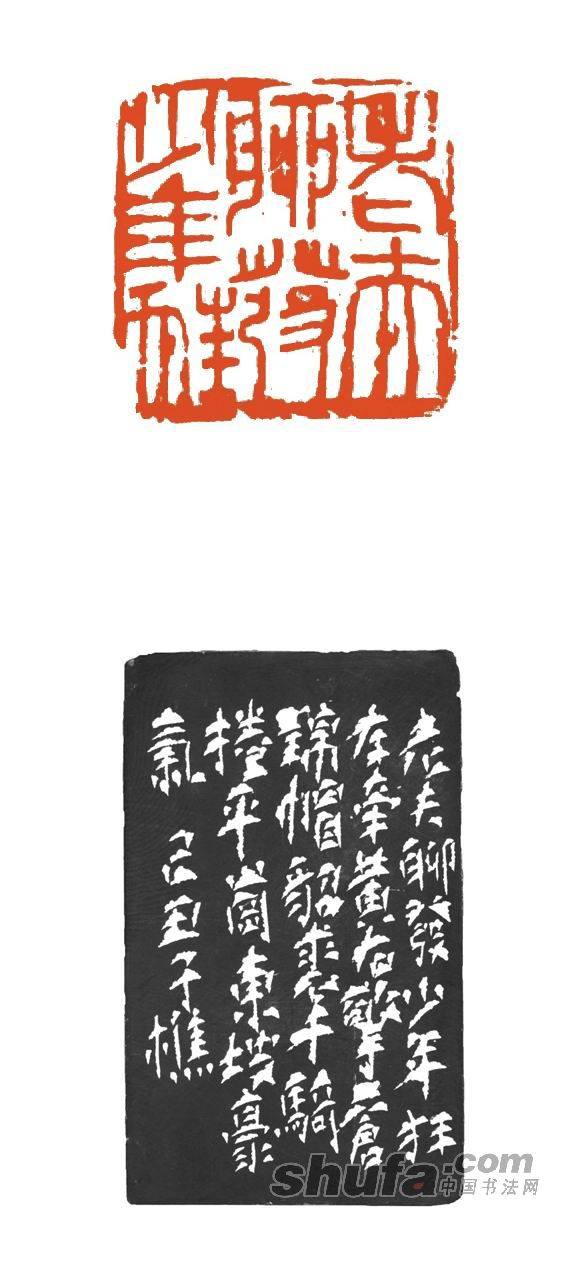 老夫
聊發
少年狂
老夫聊發少年狂
左牽黃右擎蒼
錦帽貂裘千騎
捲平岡東坡豪
氣 己丑子樵
shufa.com
中国书法网